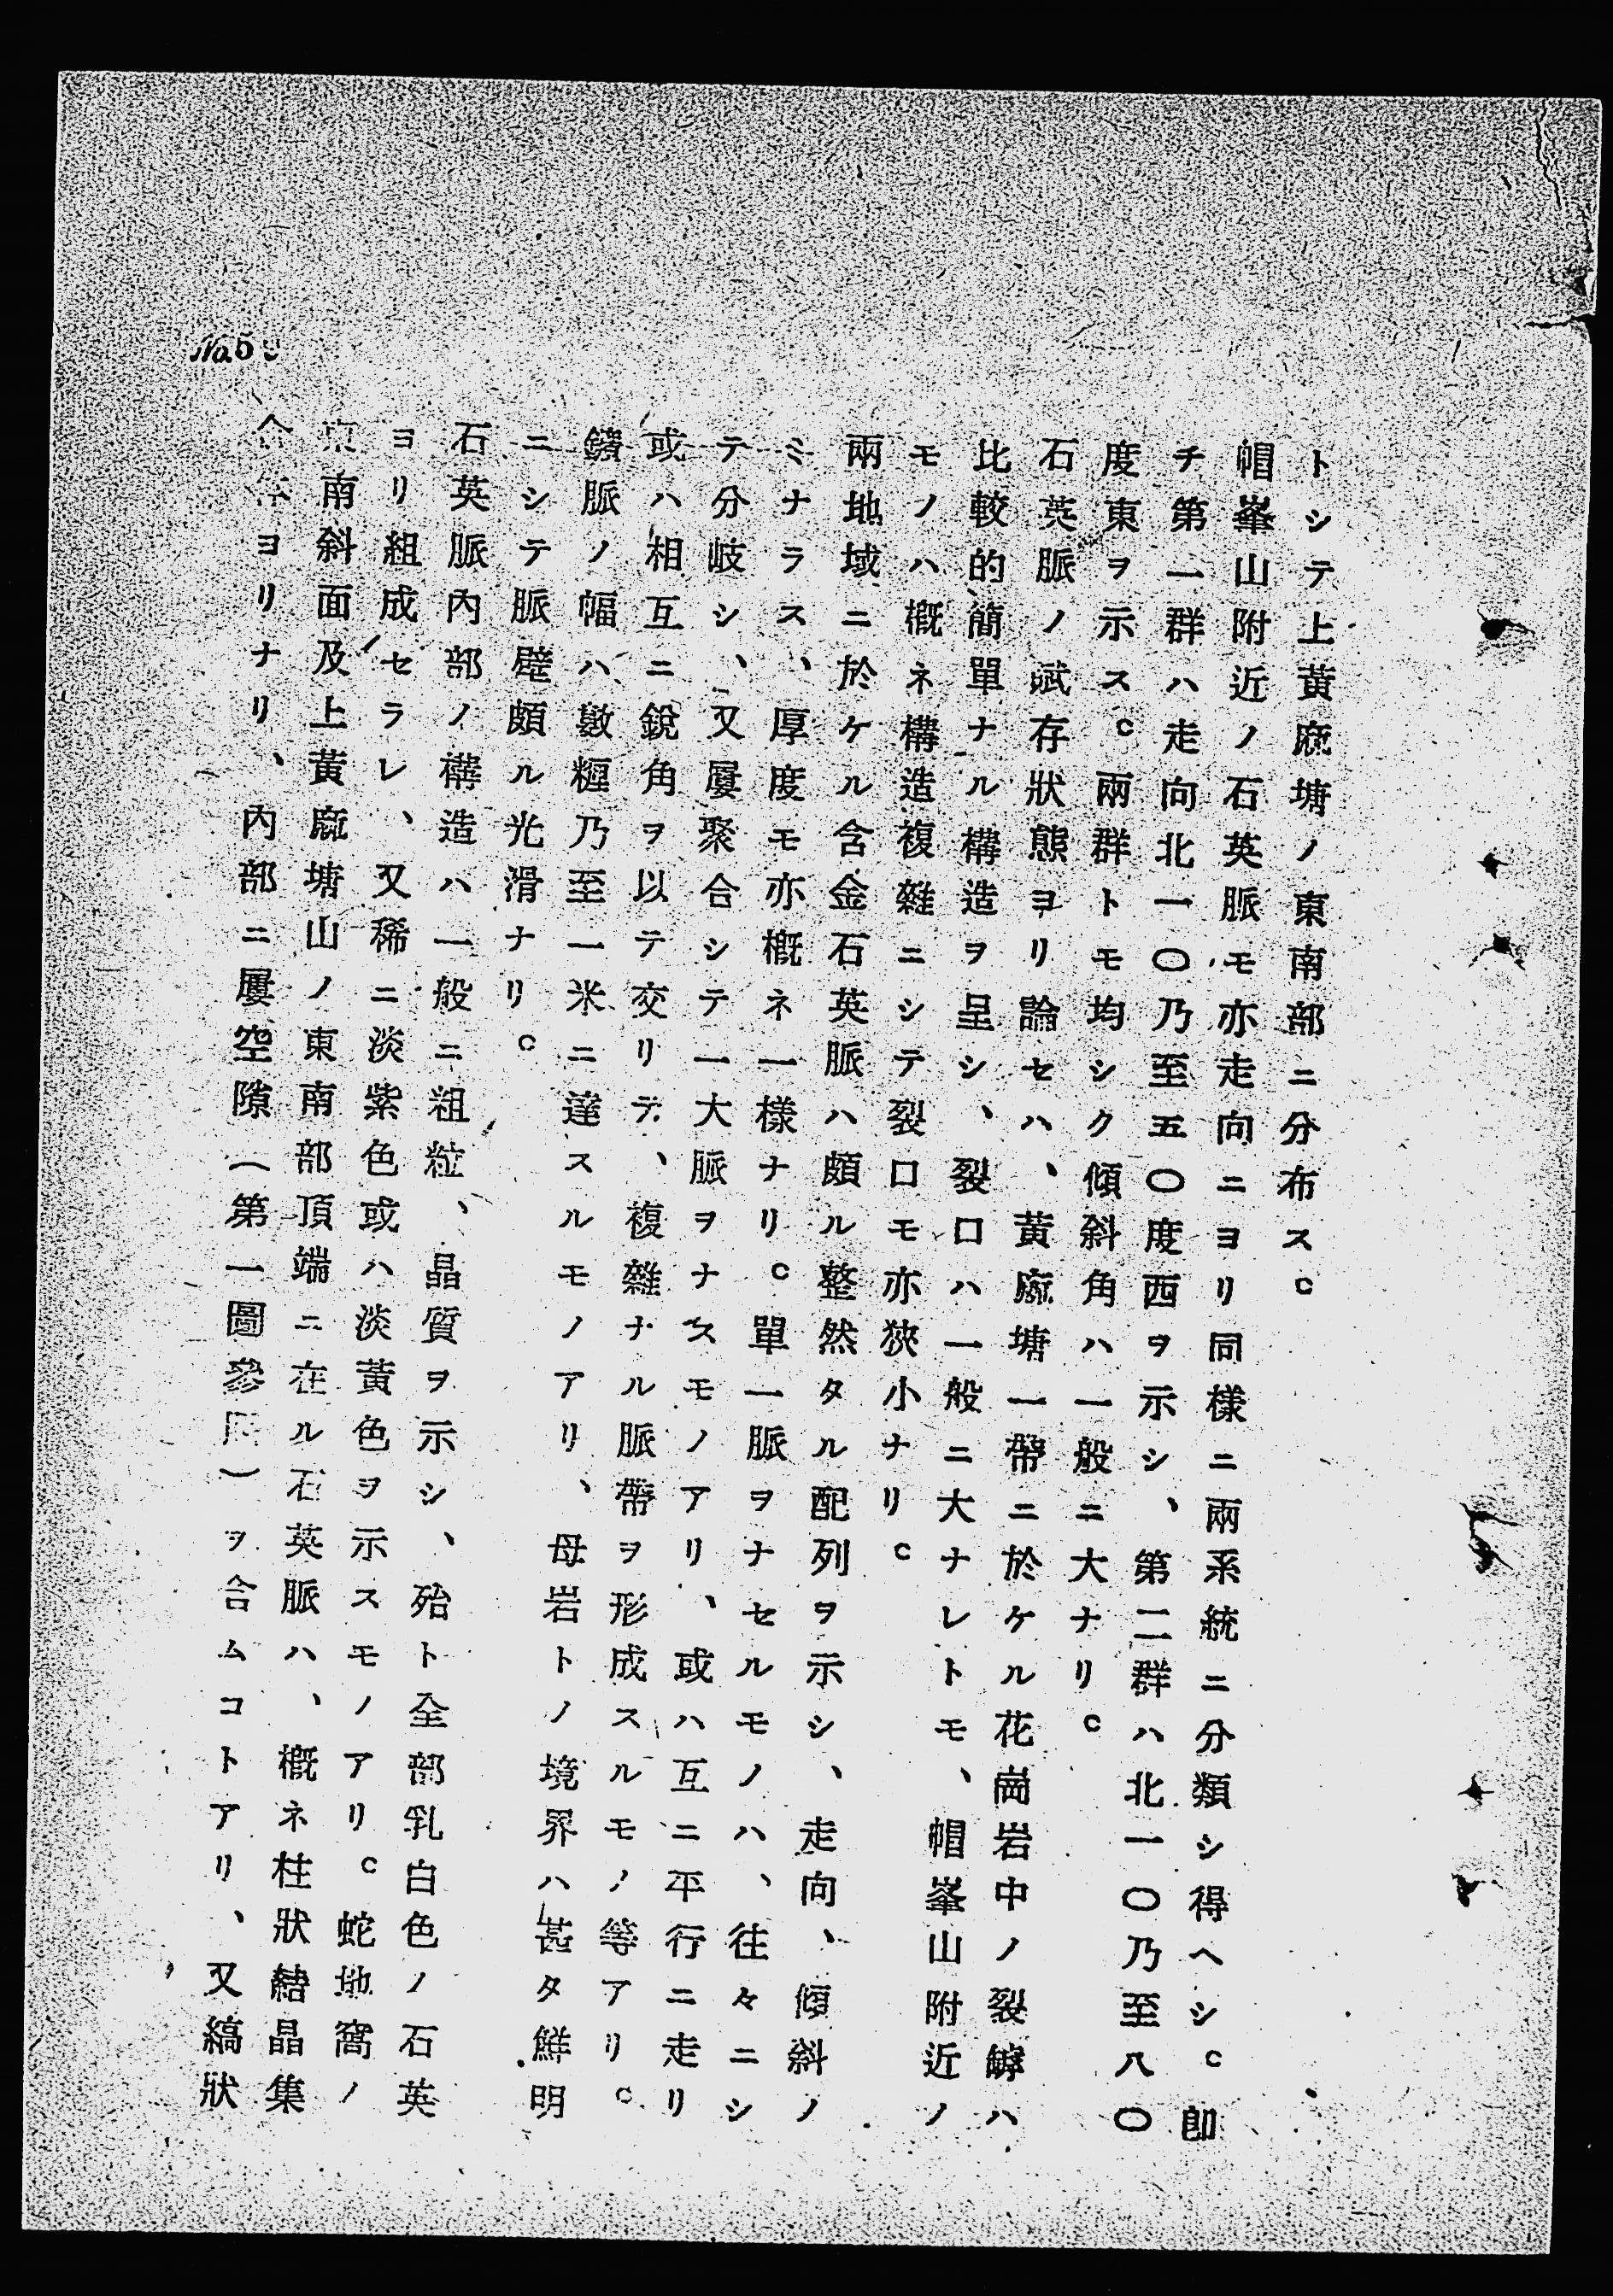 トシテ上黃廐塘ノ東南部ニ分布ス。
帽峯山附近ノ石英脈モ亦走向ニヨリ同樣ニ兩系統ニ分類シ得ヘシ。卽
チ第一群ハ走向北一〇乃至五〇度西ヲ示シ、第二群ハ北一〇乃至八〇
度東ヲ示ス。兩群トモ均シク傾斜角ハ一般ニ大ナリ。
石英脈ノ賦存狀態ヨリ論セハ、黃廐塘一帶ニ於ケル花崗岩中ノ裂罅ハ
比較的簡單ナル構造ヲ呈シ、裂口ハ一般ニ大ナレトモ、帽峯山附近ノ
モノハ槪ネ構造複雜ニシテ裂口モ亦狹小ナリ。
兩地域ニ於ケル含金石英脈ハ頗ル整然タル配列ヲ示シ、走向、傾斜ノ
ミナラス、厚度モ亦槪ネ一樣ナリ。單一脈ヲナセルモノハ、往々ニシ
テ分岐シ、又屢聚合シテ一大脈ヲナスモノアリ、或ハ互ニ平行ニ走リ
或ハ相互ニ銳角ヲ以テ交リテ、複雜ナル脈帶ヲ形成スルモノ等アリ。
鑛脈ノ幅ハ數糎乃至一米ニ達スルモノアリ、母岩トノ境界ハ甚タ鮮明
ニシテ脈壁頗ル光滑ナリ。
石英脈內部ノ構造ハ一般ニ粗粒、晶質ヲ示シ、殆ト全部乳白色ノ石英
ヨリ組成セラレ、又稀ニ淡紫色或ハ淡黃色ヲ示スモノアリ。蛇地窩ノ
南斜面及上黃廐塘山ノ東南部頂端ニ在ル石英脈ハ、槪ネ柱狀結晶集
合 ヨリナリ、內部ニ屢空隙(第一圖參 )ヲ合ムコトアリ、又縞狀
No.5